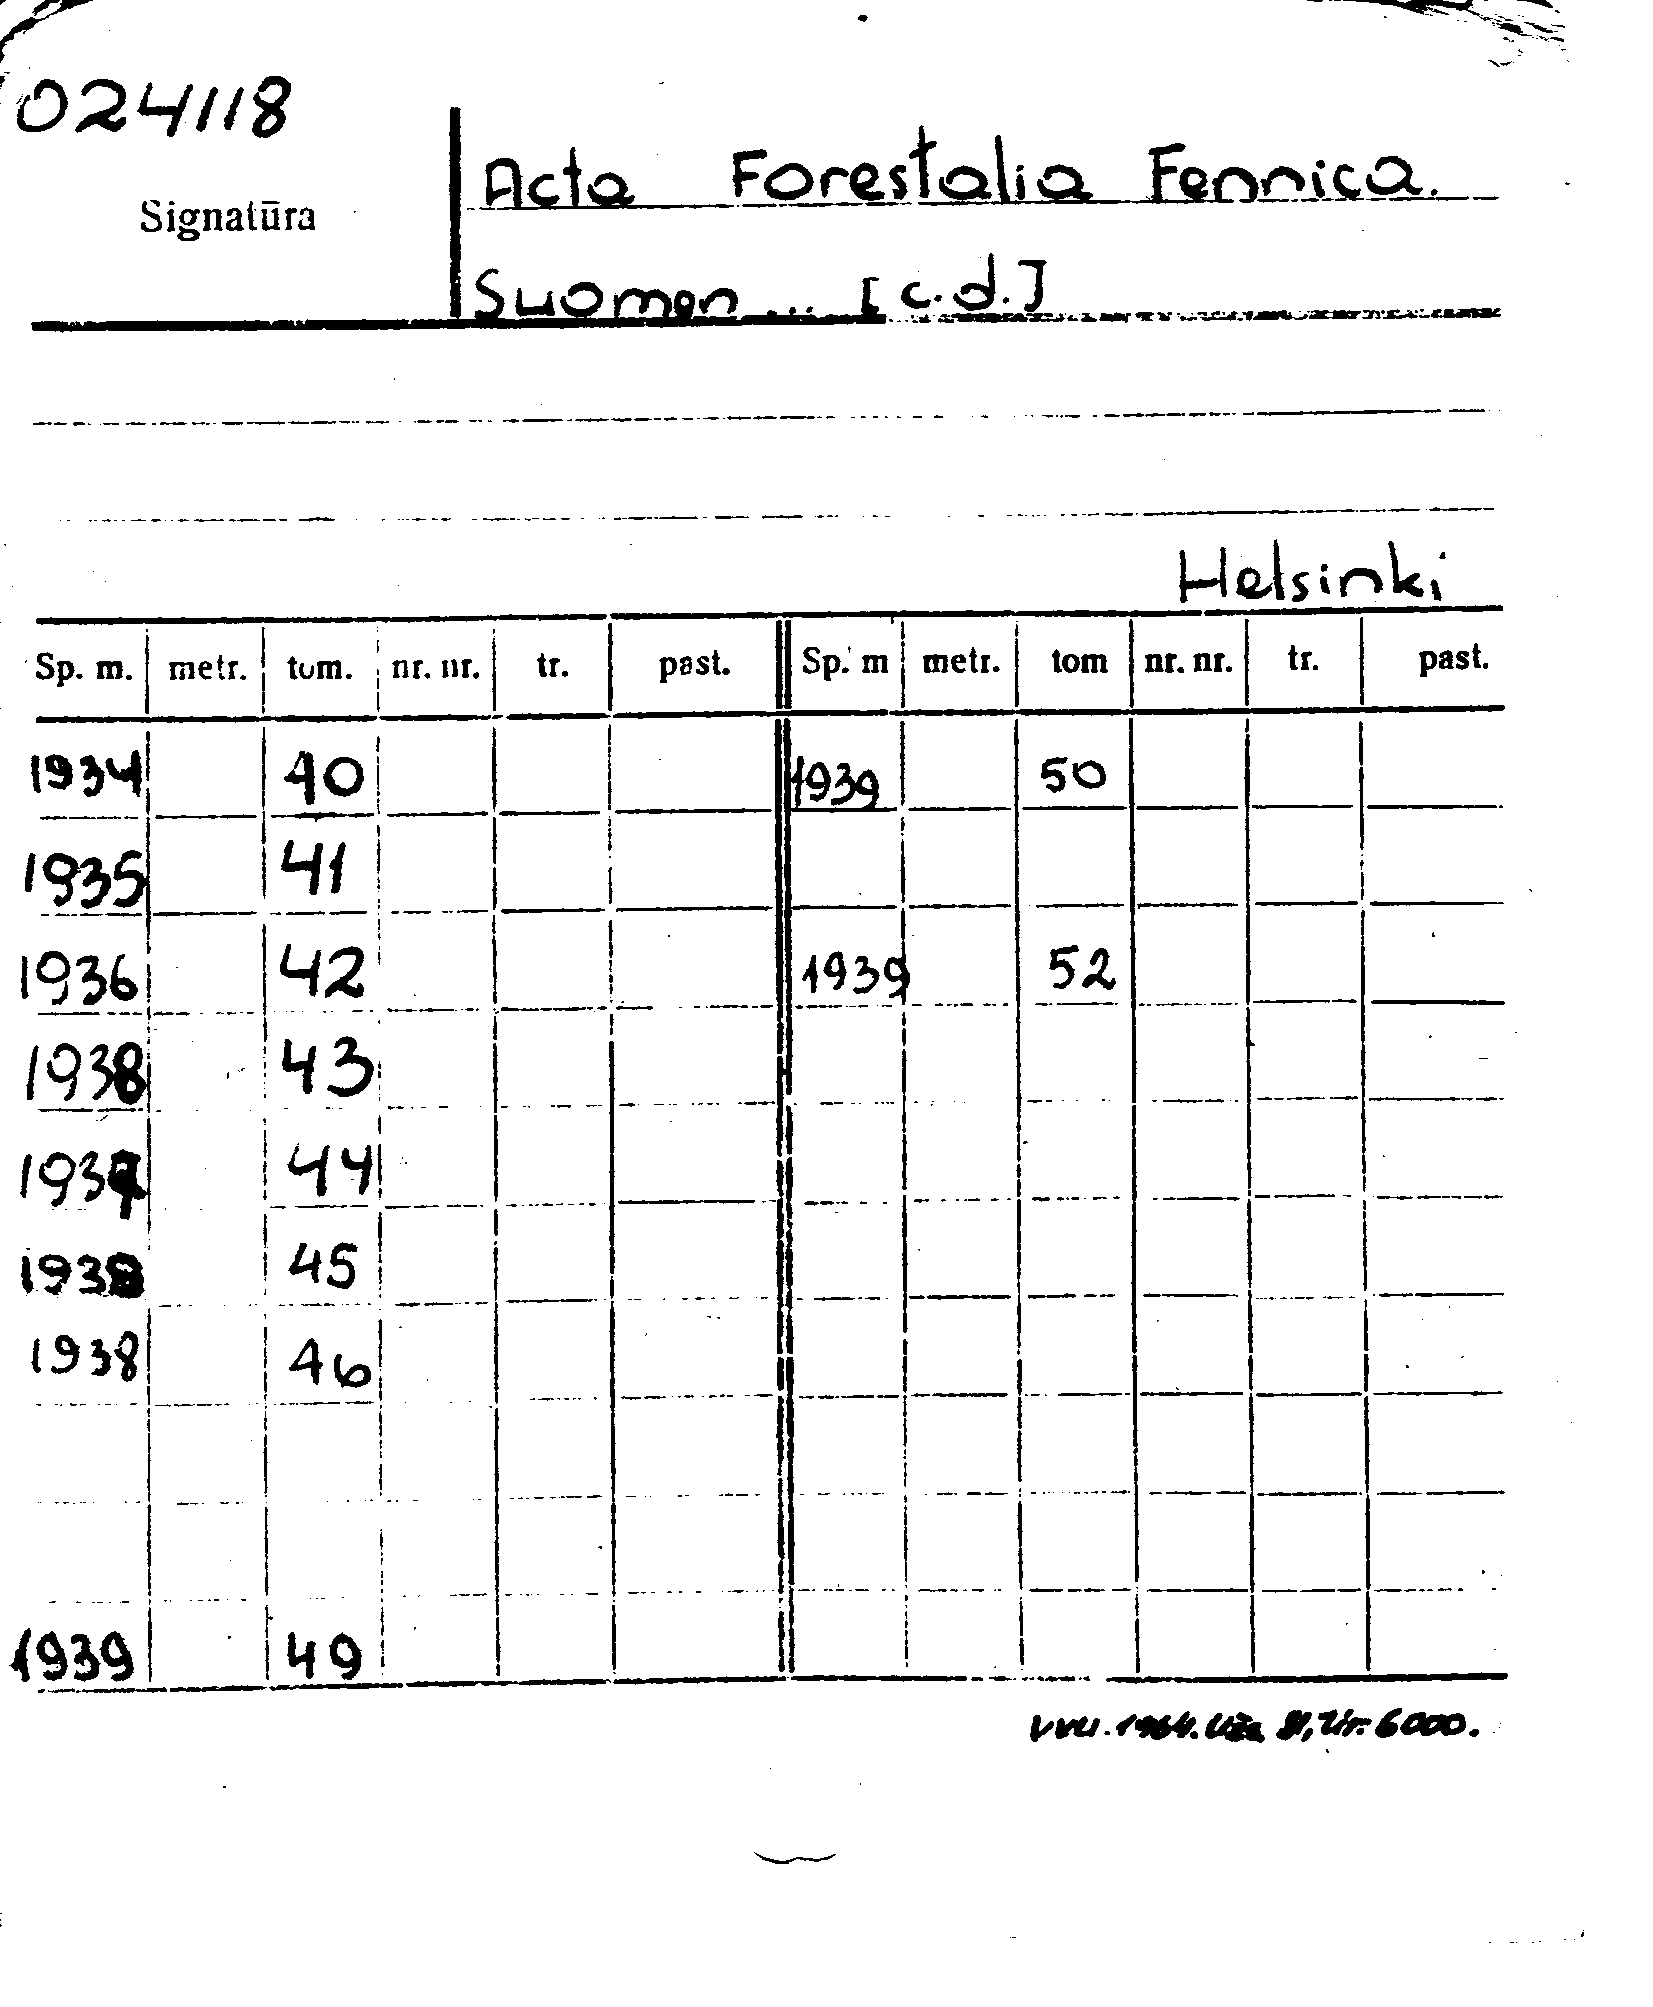 024118
Signatūra
Acta Forestalia Fennica.
Suomen ... [c.d.]
Helsinki
Sp. m. metr. tom. nr. nr. tr. past. Sp. m metr. tom nr. nr. tr. past.
1934 40 1939 50
1935 41
1936 42 1939 52
1938 43
1937 44
1938 45
1938 46
1939 49
VVU. 1964. Užs. Tir. 6000.